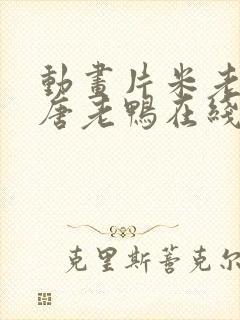 動畫片米老
唐老鴨在綫
克里斯蒂克尔